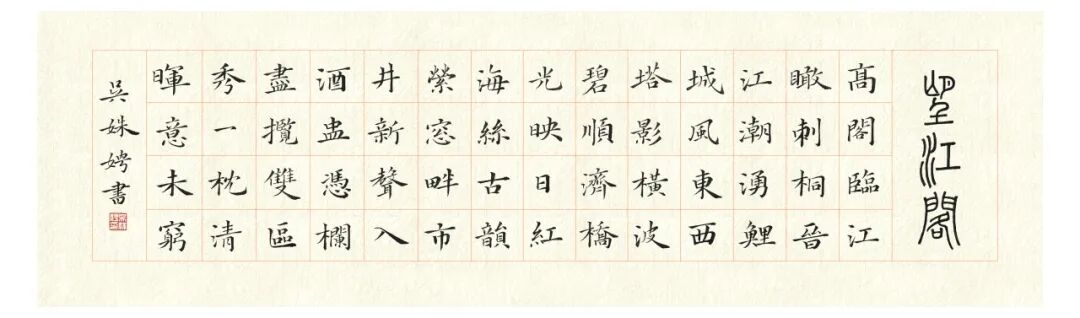 望江閣
髙閣臨江
瞰刺桐晉
江潮湧鯉
城風東西
塔影橫波
碧順濟橋
光映日紅
海絲古韻
縈窓畔市
井新聲入
酒盅憑欄
盡攬雙區
秀一枕清
暉意未窮
吳姝娉書